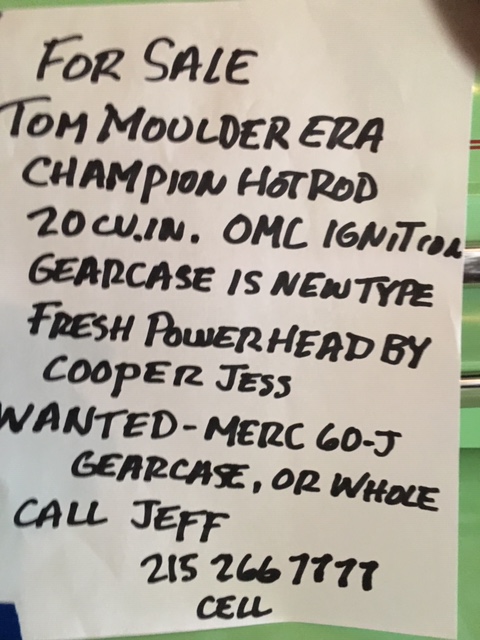 FOR SALE
TOM MOULDER ERA
CHAMPION HOTROD
20 CU.IN. OMC IGNITION
GEARCASE IS NEW TYPE
FRESH POWERHEAD BY
COOPER JESS
WANTED - MERC 60-J
GEARCASE, OR WHOLE
CALL JEFF
215 266 7777
CELL